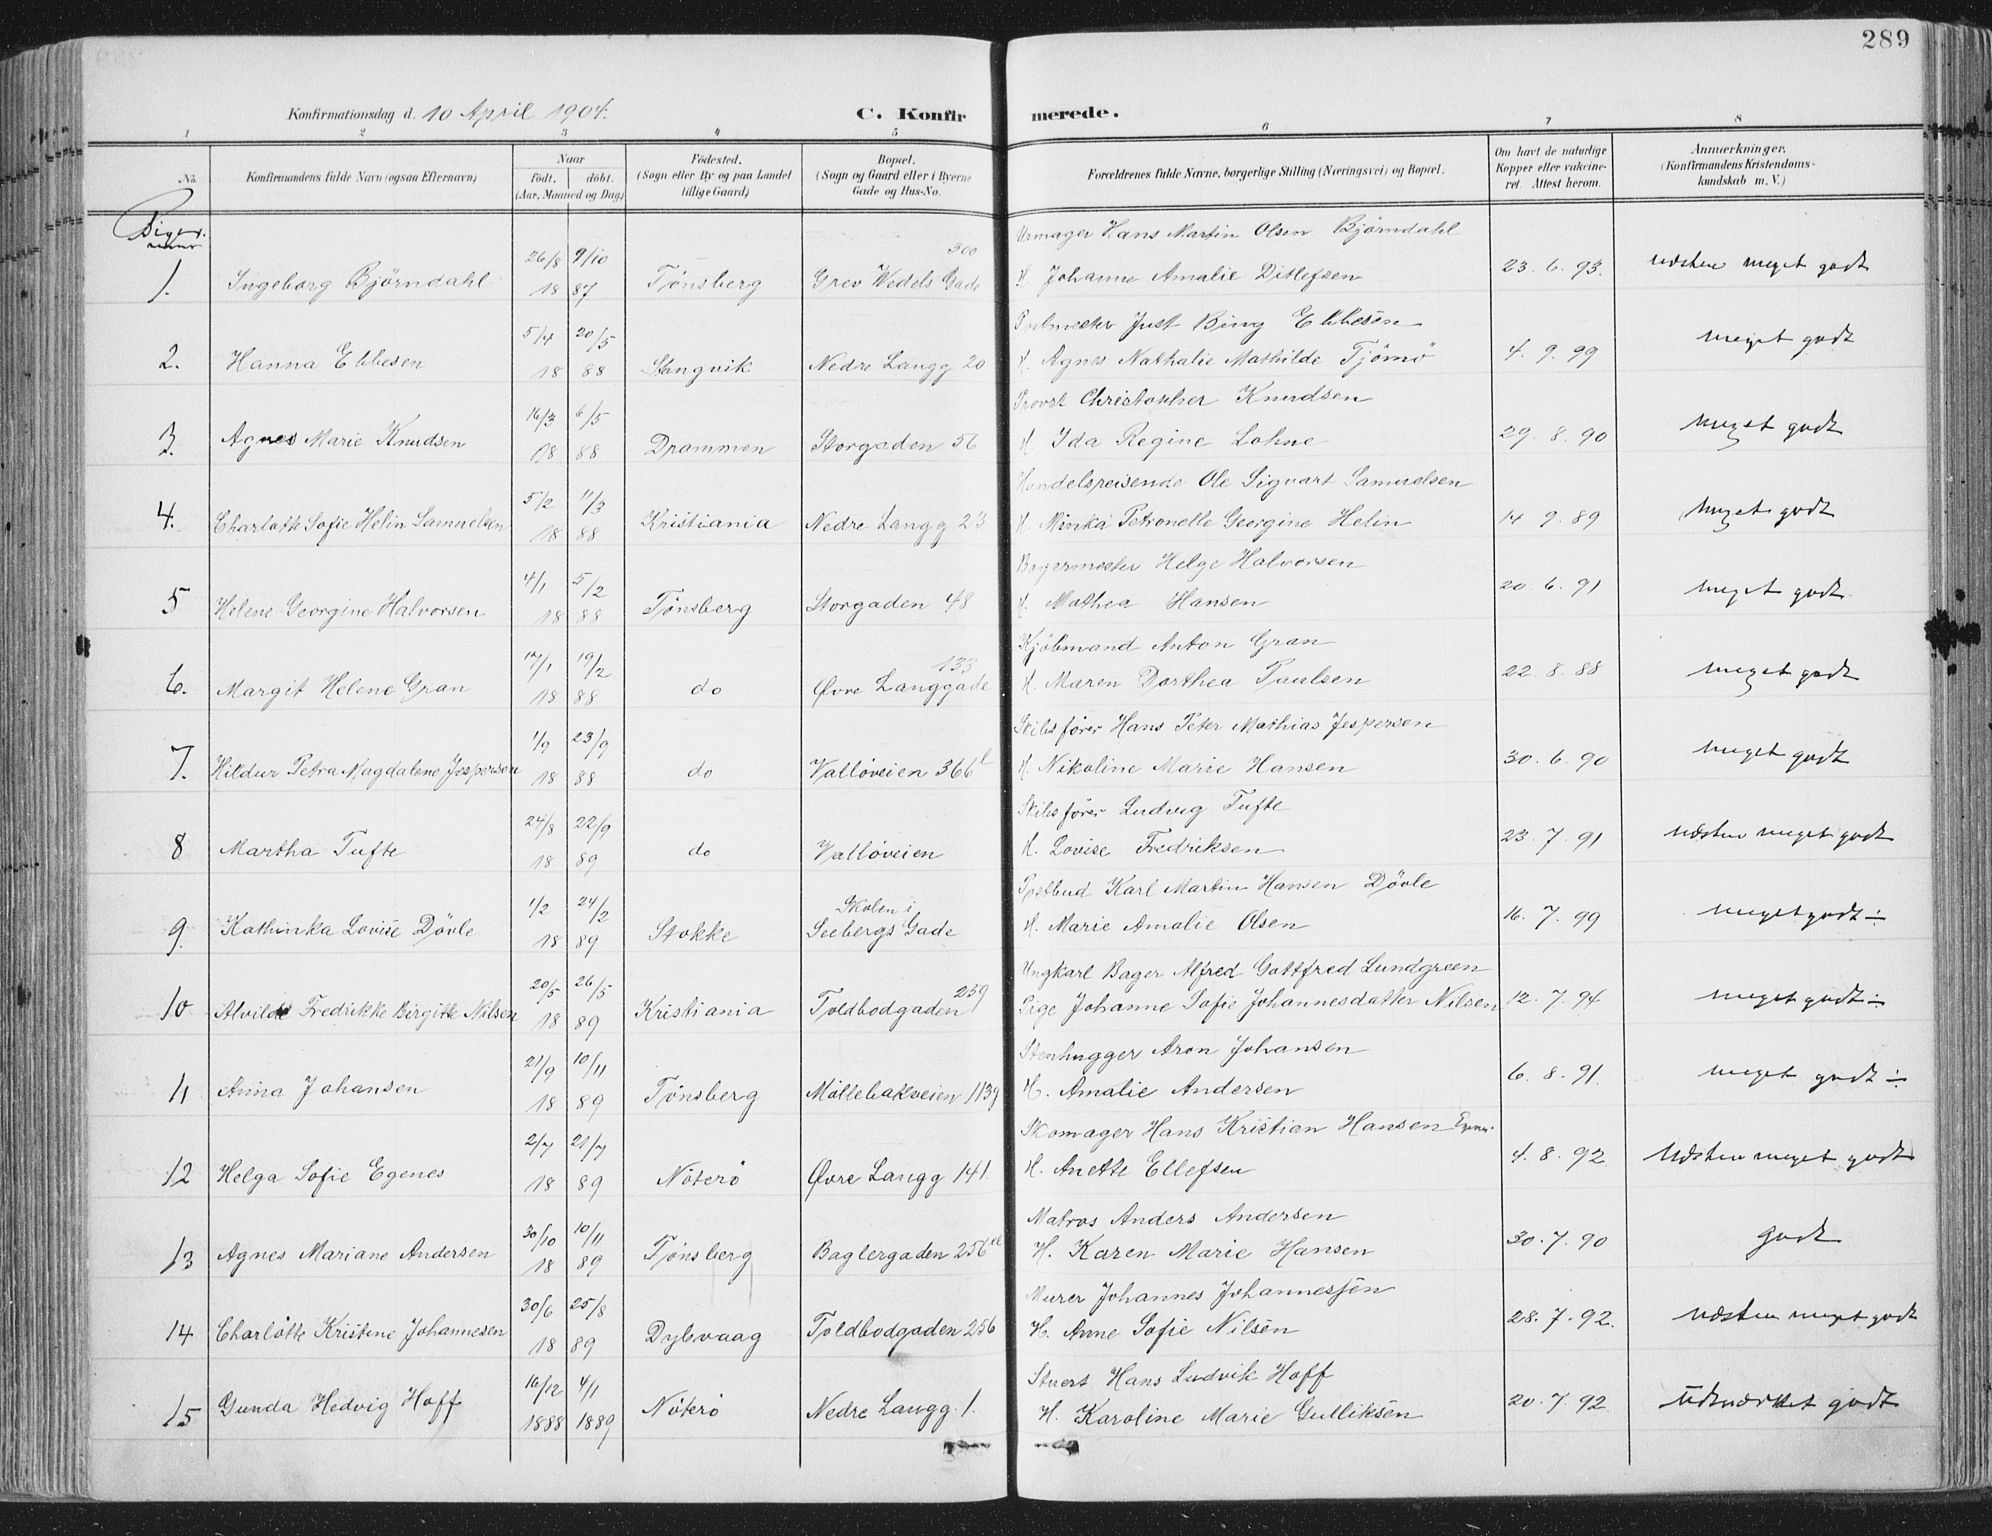 289
Konfirmationsdag d. 10 April 1904.
C. Konfirmerede.
1 2 3 4 5 6 7 8
No.
Konfirmandens fulde Navn (ogsaa Efternavn)
Naar
født. døbt.
(Aar, Maaned og Dag)
Fødested.
(Sogn eller By og paa Landet
tillige Gaard)
Bopæl.
(Sogn og Gaard eller i Byerne
Gade og Hus-No.
Forældrenes fulde Navne, borgerlige Stilling (Næringsvei) og Bopæl.
Om havt de naturlige
Kopper eller vakcine-
ret. Attest herom.
Anmærkninger.
(Konfirmandens Kristendoms-
kundskab m. V.)
Piger.
Urmager Hans Martin Olsen Bjørndahl
1. Ingeborg Bjørndahl 26/8 9/10 18 87 Tønsberg Grev Wedels Gade 300 H Johanne Amalie Ditlefsen 23. 6. 93. næsten meget godt
Postmester Just Bing Ebbesen
2. Hanna Ebbesen 5/4 20/5 18 88 Stangvik Nedre Langg 20 H. Agnes Nathalie Mathilde Tjömö 4. 9. 99 meget godt
Provst Christopher Knudsen
3. Agnes Marie Knudsen 16/3 6/5 18 88 Drammen Storgaden 56 H Ida Regine Lohne 29. 8. 90 meget godt
Handelsreisende Ole Sigvart Samuelsen
4. Charlotte Sofie Helin Samuelsen 5/2 11/3 18 88 Kristiania Nedre Langg 23 H. Minka Petronelle Georgine Helin 14 9. 89 meget godt
Bagermester Helge Halvorsen
5 Helene Georgine Halvorsen 4/1 5/2 18 88 Tønsberg Storgaden 48 H. Mathea Hansen 20. 6. 91 meget godt
Kjöbmand Anton Gran
6. Margit Helene Gran 17/1 19/2 18 88 do Øvre Langgade 133 H. Maren Dorthea Paulsen 22. 8. 88 meget godt
Skibsfører Hans Peter Mathias Jespersen
7. Hildur Petra Magdalene Jespersen 1/9 23/9 18 88 do Valløveien 366 H. Nikoline Marie Hansen 30. 6. 90 meget godt
Skibsfører Ludvig Tufte
8 Martha Tufte 24/8 22/9 18 89 do Valløveien H. Lovise Fredriksen 23. 7. 91 næsten meget godt
Postbud Karl Martin Hansen Dövle
9 Kathinka Lovise Dövle 1/2 24/2 18 89 Stokke Skolen i Seebergs Gade H. Marie Amalie Olsen 16. 7. 99 meget godt ÷
Ungkarl Bager Alfred Gottfred Lundgreen
10 Alvilde Fredrikke Birgitte Nilsen 20/5 26/5 18 89 Kristiania Toldbodgaden 259 Pige Johanne Sofie Johannesdatter Nilsen 12. 7. 94 meget godt ÷
Stenhugger Aron Johansen
11 Anna Johansen 21/9 10/11 18 89 Tønsberg Möllebakveien 113 H. Amalie Andersen 6. 8. 91. meget godt ÷
Skomager Hans Kristian Hansen
12 Helga Sofie Egenes 2/7 21/7 18 89 Nöterö Øvre Langg 141. H. Anette Ellefsen 4. 8. 92 Næsten meget godt
Matros Anders Andersen
13 Agnes Mariane Andersen 30/10 10/11 18 89 Tjønsberg Baglergaden 256 H. Karen Marie Hansen 30. 7. 90 godt
Murer Johannes Johannessen
14 Charlotte Kristine Johannesen 30/6 25/8 18 89 Dybvaag Toldbodgaden 256 H. Anne Sofie Nilsen 28. 7. 92. næsten meget godt
Stuert Hans Ludvik Hoff
15 Gunda Hedvig Hoff 16/12 4/1 1888 1889 Nöterö Nedre Langg. 1. H. Karoline Marie Gulliksen 20. 7. 92 Udmærket godt